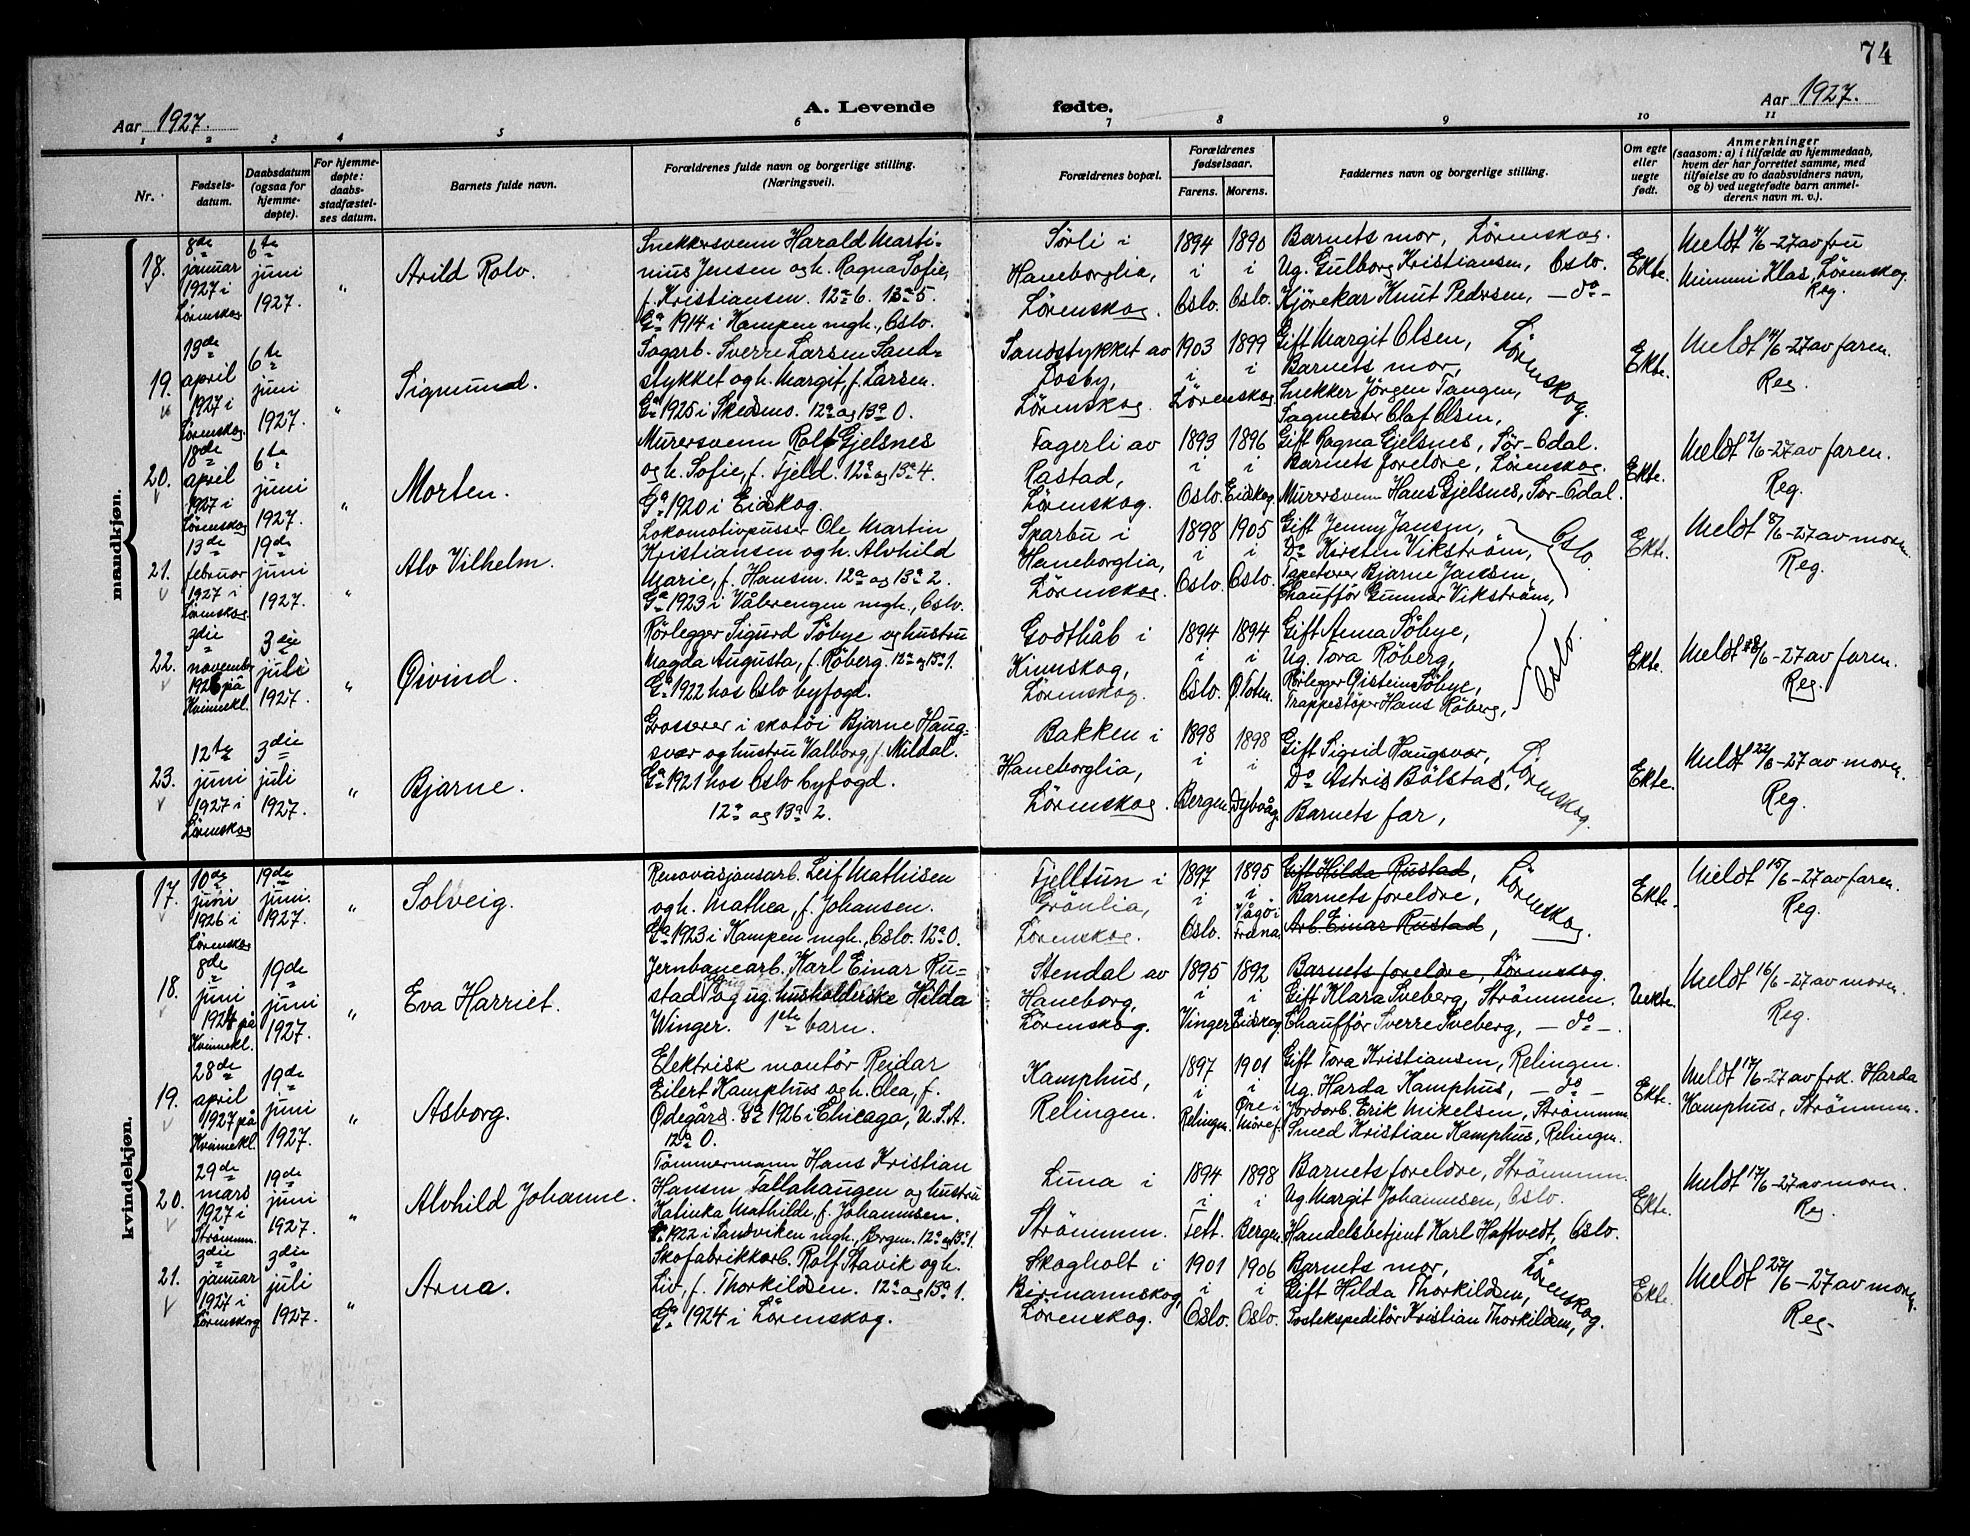 74
Aar 1927.
A. Levende fødte.
Aar 1927.
1 2 3 4 5 6 7 8 9 10 11
Nr.
Fødsels-datum.
Daabsdatum (ogsaa for hjemme-døpte).
For hjemme-døpte: daabs-stadfæstel-ses datum.
Barnets fulde navn.
Forældrenes fulde navn og borgerlige stilling. (Næringsvei).
Forældrenes bopæl.
Forældrenes fødselsaar.
Farens. Morens.
Faddernes navn og borgerlige stilling.
Om egte eller uegte født.
Anmerkninger (saasom: a) i tilfælde av hjemmedaab, hvem der har forrettet samme, med tilføielse av to daabsvidners navn, og b) ved uegtefødte barn anmel-derens navn m. v.).
mandkjøn.
18.
8de januar 1927 i Lörenskog
6te juni 1927.
"
Arild Rolv.
Snekkersvenn Harald Marti-
nius Jensen og h. Ragna Sofie,
f. Kristiansen. 12a 6. 13a 5.
Ga 1914 i Kampen mgh., Oslo.
Sörli i
Haneborglia,
Lörenskog.
1894 i Oslo.
1890 i Oslo.
Barnets mor, Lörenskog.
Ug. Gulborg Kristiansen, Oslo.
Kjörekar Knut Pedersen, - do -
Ekte.
Meldt 4/6-27 av fru
Mimmi Klas, Lörenskog.
Reg.
19.
19de april 1927 i Lörenskog.
6te juni 1927.
"
Sigmund.
Sagarb. Sverre Larsen Sand=
stykket og h. Margit, f. Larsen.
Ga 1925 i Skedsmo. 12a og 13a 0.
Sandstykket av
Losby,
Lörenskog.
1903 i
1899 i
Lörenskog.
Gift Margit Olsen,
Barnets mor,
Snekker Jörgen Tangen,
Sagmester Olaf Olsen,
Lörenskog.
Ekte.
Meldt 14/6-27 av faren.
Reg.
20.
18de april 1927 i Lörenskog
6te juni 1927.
"
Morten.
Murersvenn Rolf Gjelsnes
og h. Sofie, f. Fjeld. 12a og 13a 4.
Ga 1920 i Eidskog.
Fagerli av
Rastad,
Lörenskog.
1893 i Oslo.
1896 i Eidskog.
Gift Ragna Gjelsnes, Sör-Odal.
Barnets foreldre, Lörenskog.
Murersvenn Hans Gjelsnes, Sör-Odal.
Ekte.
Meldt 2/6-27 av faren.
Reg.
21.
13de februar 1927 i Lörenskog.
19de juni 1927.
"
Alv Vilhelm.
Lokomotivpusser Ole Martin
Kristiansen og h. Alvhild
Marie, f. Hansen. 12a og 13a 2.
Ga 1923 i Vålerengen mgh., Oslo.
Sparbu i
Haneborglia,
Lörenskog.
1898 i Oslo.
1905 i Oslo.
Gift Jenny Jansen,
Do Kirsten Vikström,
Tapetserer Bjarne Jansen,
Chaufför Gunnar Vikström,
Oslo.
Ekte.
Meldt 8/6-27 av moren.
Reg.
22.
3die november 1926 på Kvinnekl.
3die juli 1927.
"
Öivind.
Rörlegger Sigurd Söbye og hustru
Magda Augusta, f. Röberg. 12a og 13a 1.
Ga 1922 hos Oslo byfogd.
Godthåb i
Kinnskog,
Lörenskog.
1894 i Oslo.
1894 i Ö. Toten.
Gift Anna Söbye,
Ug. Tora Röberg,
Rörlegger Öistein Söbye,
Trappestöper Hans Röberg,
Oslo.
Ekte.
Meldt 18/6-27 av faren.
Reg.
23.
12te juni 1927 i Lörenskog
3die juli 1927.
"
Bjarne.
Grosserer i skotöi Bjarne Haug-
svær og hustru Valborg f. Mildal.
Ga 1921 hos Oslo byfogd.
12a og 13a 2.
Bakken i
Haneborglia,
Lörenskog.
1898 i Bergen.
1898 i Dybvåg.
Gift Sigrid Haugsvær,
Do Astrid Bölstad,
Barnets far,
Lörenskog.
Ekte.
Meldt 22/6-27 av moren.
Reg.
kvindekjøn.
17.
10de juni 1926 i Lörenskog
19de juni. 1927.
"
Solveig.
Renovasjonsarb. Leif Mathisen
og h. Mathea, f. Johansen.
Ga 1923 i Kampen mgh., Oslo. 12a 0.
Fjelltun i
Grönlia,
Lörenskog.
1897 i Oslo.
1895 i Vågö i Fræna.
Gift Hilda Rustad,
Barnets foreldre,
Arb. Einar Rustad,
Lörenskog.
Ekte.
Meldt 15/6-27 av faren.
Reg.
18.
8de juni 1924 på Kvinnekl.
19de juni 1927.
"
Eva Harriet.
Jernbanearb. Karl Einar Ru-
stad og ug. husholderske Hilda
Winger. 1ste barn.
Stendal av
Haneborg,
Lörenskog.
1895 i Vinger
1892 i Eidskog.
Barnets foreldre, Lörenskog.
Gift Klara Sveberg, Strömmen.
Chaufför Sverre Sveberg, - do -.
Uekte.
Meldt 16/6-27 av moren.
Reg.
19.
28de april 1927 på Kvinnekl.
19de juni 1927.
"
Asborg.
Elektrisk montör Reidar
Eilert Kamphus og h. Olea, f.
Ödegård. Ga 1926 i Chicago, U.S.A.
12a 0.
Kamphus,
Relingen.
1897 i Relingen.
1901 i Öre i Möre f.
Gift Tora Kristiansen, Relingen.
Ug. Harda Kamphus, - do -
Jordarb. Erik Mikelsen, Strömmen.
Smed Kristian Kamphus, Relingen.
Ekte.
Meldt 17/6-27 av frk. Harda
Kamphus, Strömmen.
20.
29de mars 1927 i Strömmen.
19de juni 1927.
"
Alvhild Johanne.
Tömmermann Hans Kristian
Hansen Fallahaugen og hustru
Katinka Mathilde, f. Johannesen.
Ga 1922 i Sandviken mgh., Bergen. 12a og 13a 1.
Luna i
Strömmen.
1894 i Fett.
1898 i Bergen.
Barnets foreldre, Strömmen.
Ug. Margit Johannesen, Oslo.
Handelsbetjent Karl Haftvedt, Oslo.
Ekte.
Meldt 17/6-27 av moren.
Reg.
21.
3die januar 1927 i Lörenskog
3die juli 1927.
"
Arna.
Skofabrikkarb. Rolf Stavik og h.
Liv, f. Thorkildsen. 12a og 13a 1.
Ga 1924 i Lörenskog.
Skogholt i
Bjermannskog,
Lörenskog.
1901 i Oslo.
1906 i Oslo.
Barnets mor,
Gift Hilda Thorkildsen,
Postekspeditör Kristian Thorkildsen,
Lörenskog.
Ekte.
Meldt 27/6-27 av moren.
Reg-